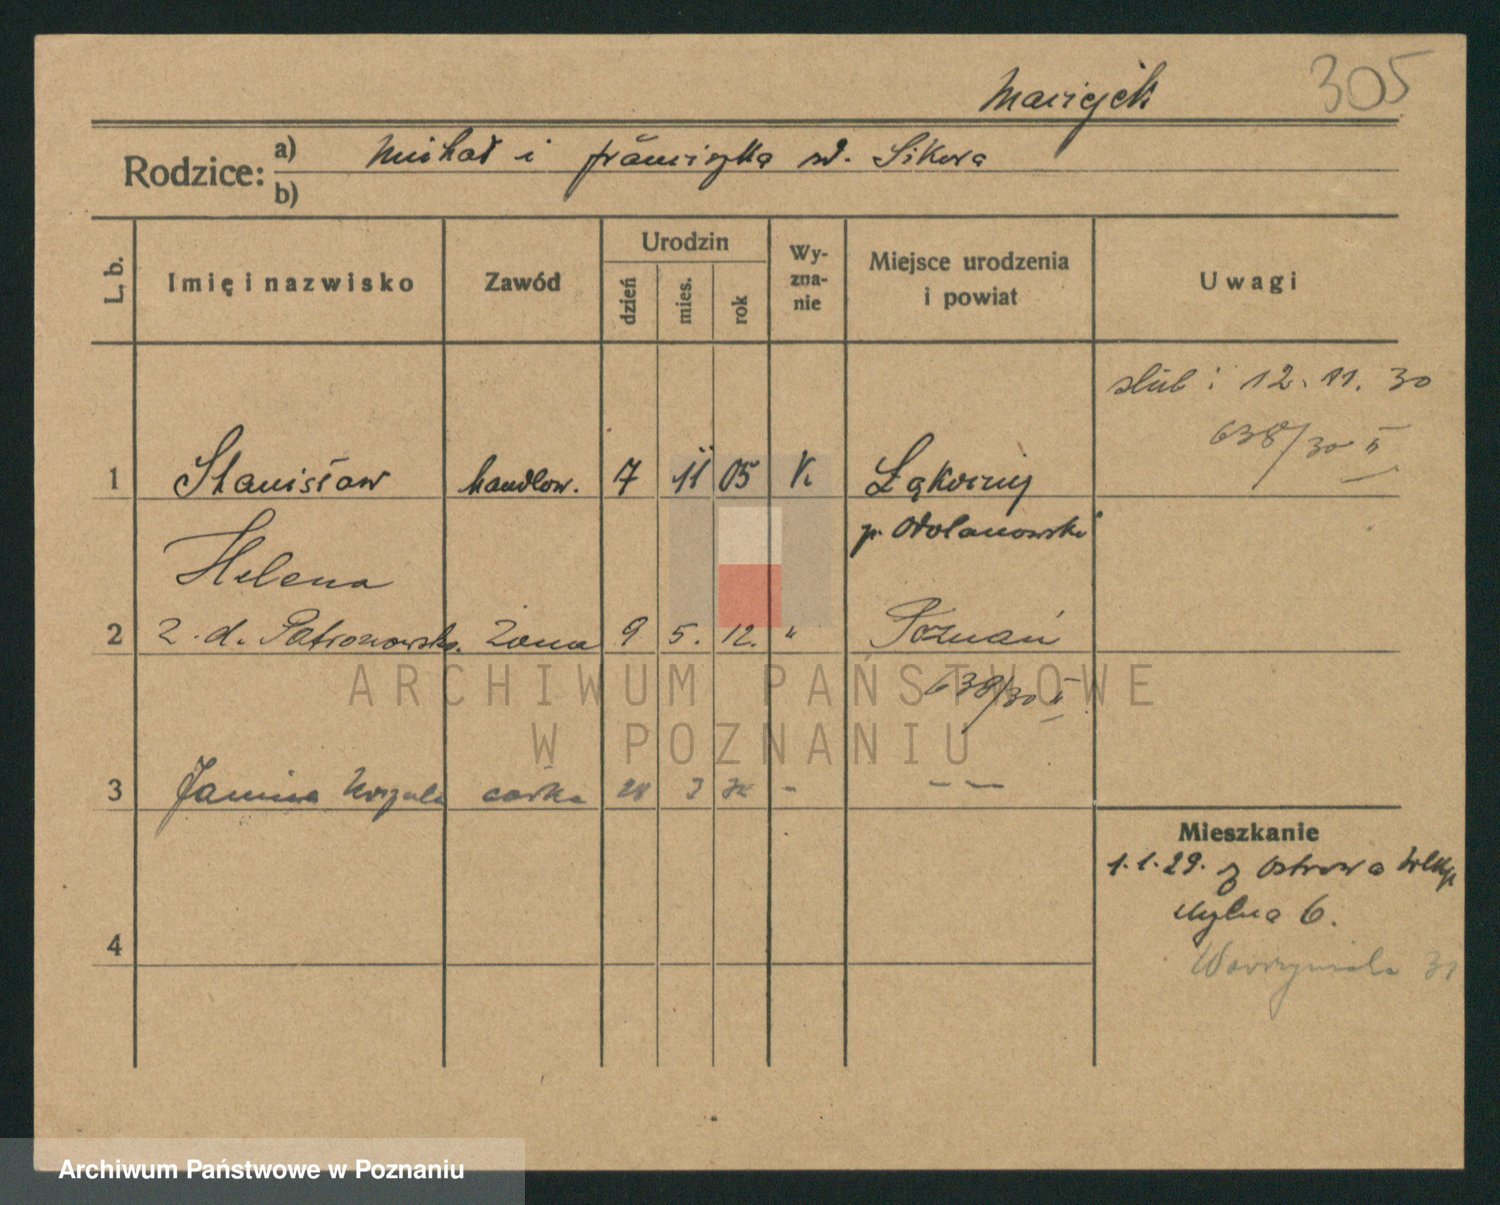 Maciejek 305
Rodzice: a) Michał i Franciszka zd. Sikora
b)
L. b. Imię i nazwisko Zawód Urodzin dzień mies. rok Wyznanie Miejsce urodzenia i powiat Uwagi
ślub: 12. 11. 30
638/30 II
1 Stanisław handlow. 7 11 05 K
p. Odolanowski
Helena
2 z. d. żona 9 5. 12. " Poznań
638/30 II
3 Janina córka 28 3 - — —
Mieszkanie
1.1.29. z Ostrowa Wlkp
Mylna 6.
4
31
ARCHIWUM PAŃSTWOWE
W POZNANIU
Archiwum Państwowe w Poznaniu